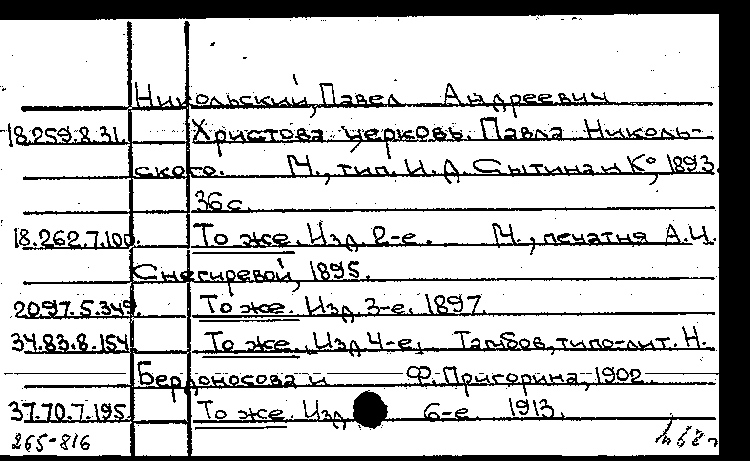 Никольский, Павел Андреевич
18.259.8.31. Христова церковь. Павла Николь-
ского. М., тип. И. Д. Сытина и К°, 1893.
36 с.
18.262.7.100. То же. Изд. 2-е. М., печатня А.И.
Снегиревой, 1895.
2097.5.349. То же. Изд. 3-е. 1897.
34.83.8.154 То же. Изд 4-е, Тамбов, типо-лит. Н.
Бердоносова и Ф. Пригорина, 1902.
37.70.7.195. То же. Изд. 6-е. 1913.
265-816